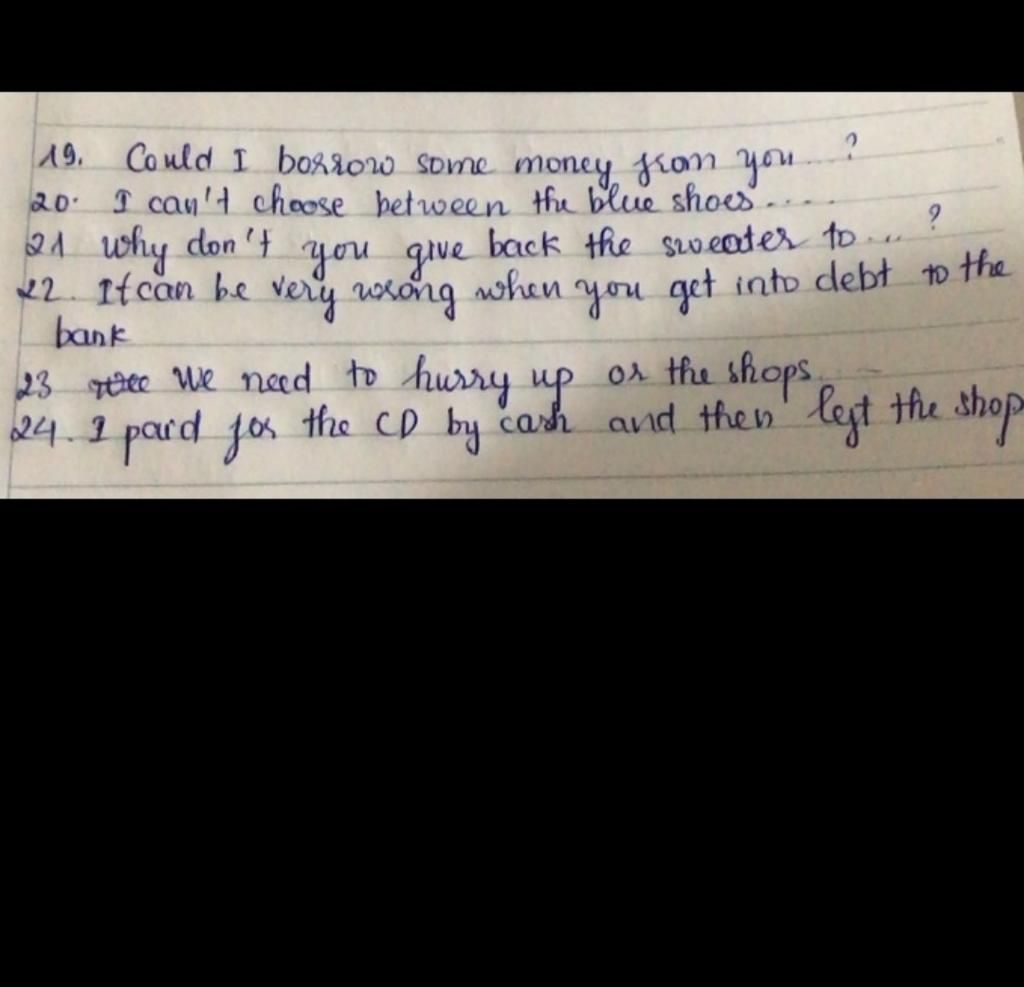 19. Could I borrow some money from you...?
20. I can't choose between the blue shoes....
21 why don't you give back the sweater to...?
22. It can be very wrong when you get into debt to the
bank
23 We need to hurry up or the shops....
24. I paid for the CD by cash and then left the shop